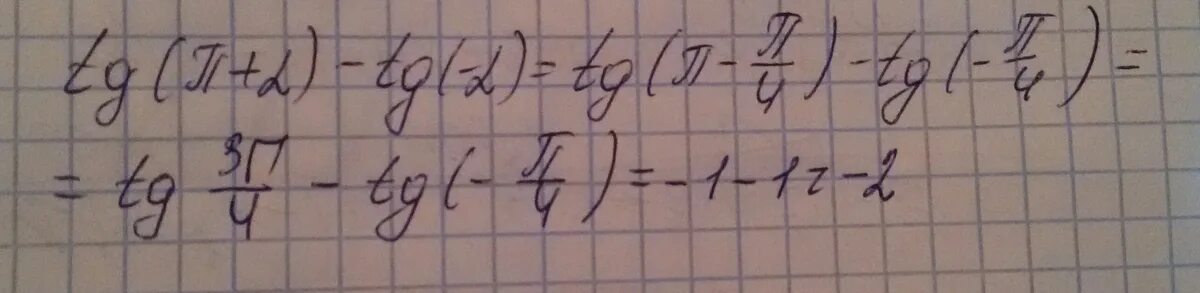 tg(π+α)-tg(-α)=tg(π-π/4)-tg(-π/4)=
=tg 3π/4 - tg(-π/4)=-1-1=-2